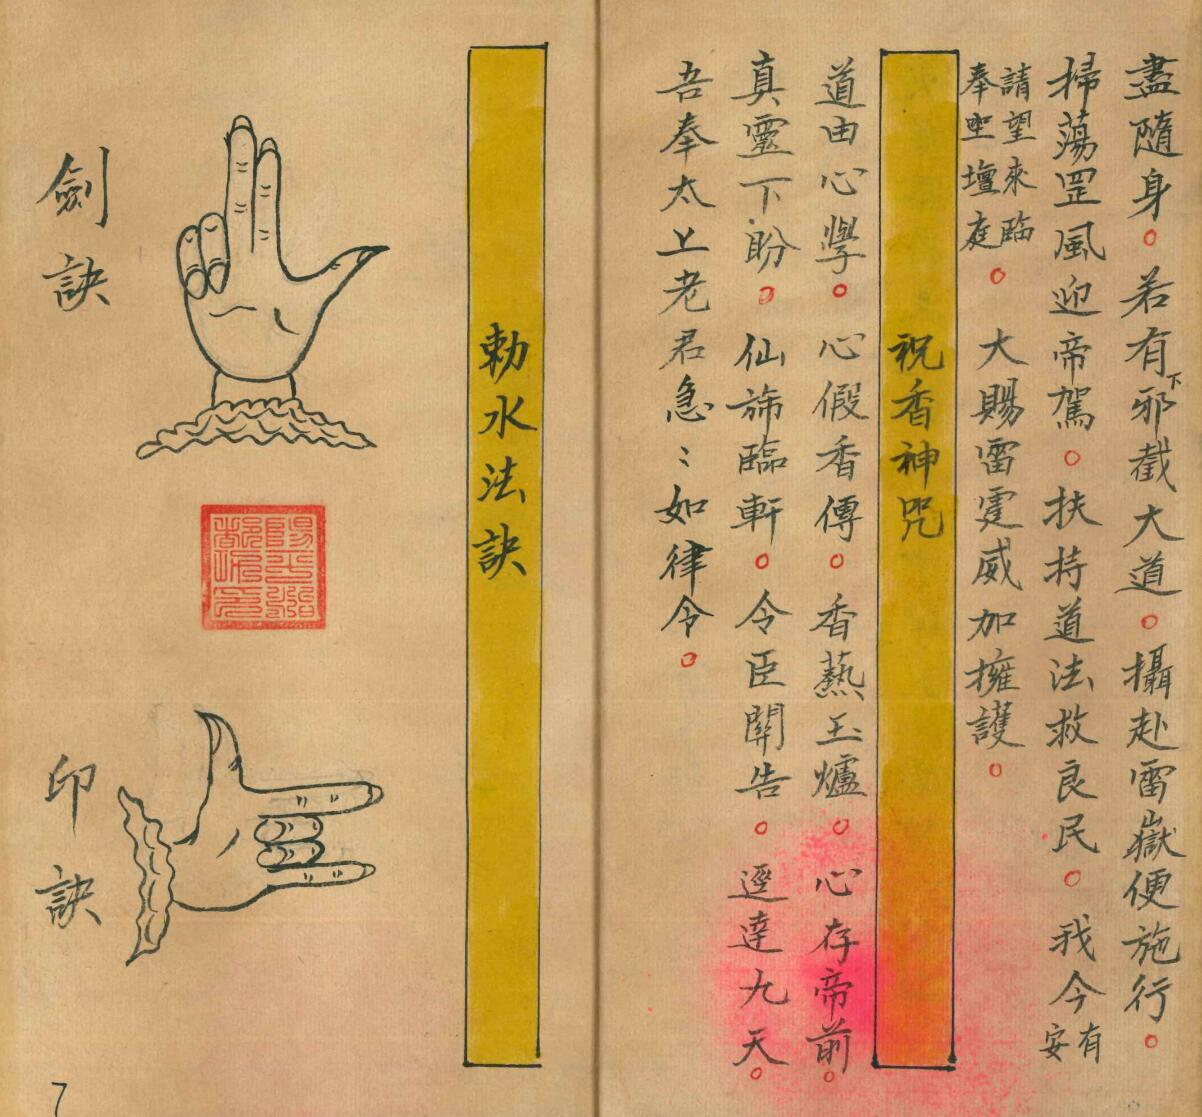 盡隨身。若有下邪截大道。攝赴雷嶽便施行。
掃蕩罡風迎帝駕。扶持道法救良民。我今有安
請望來臨
奉聖壇庭。大賜雷霆威加擁護。
祝香神咒
道由心學。心假香傳。香爇玉爐。心存帝前。
真靈下盼。仙旆臨軒。令臣關告。逕達九天。
吾奉太上老君急〻如律令。
勅水法訣
劍訣
印訣
陽平治都功印
7